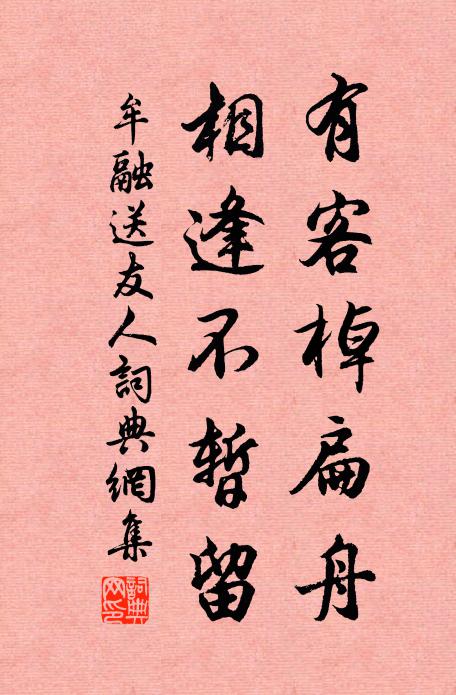 有客棹扁舟
相逢不暫留
牟融送友人詞典網集
詞典
网印